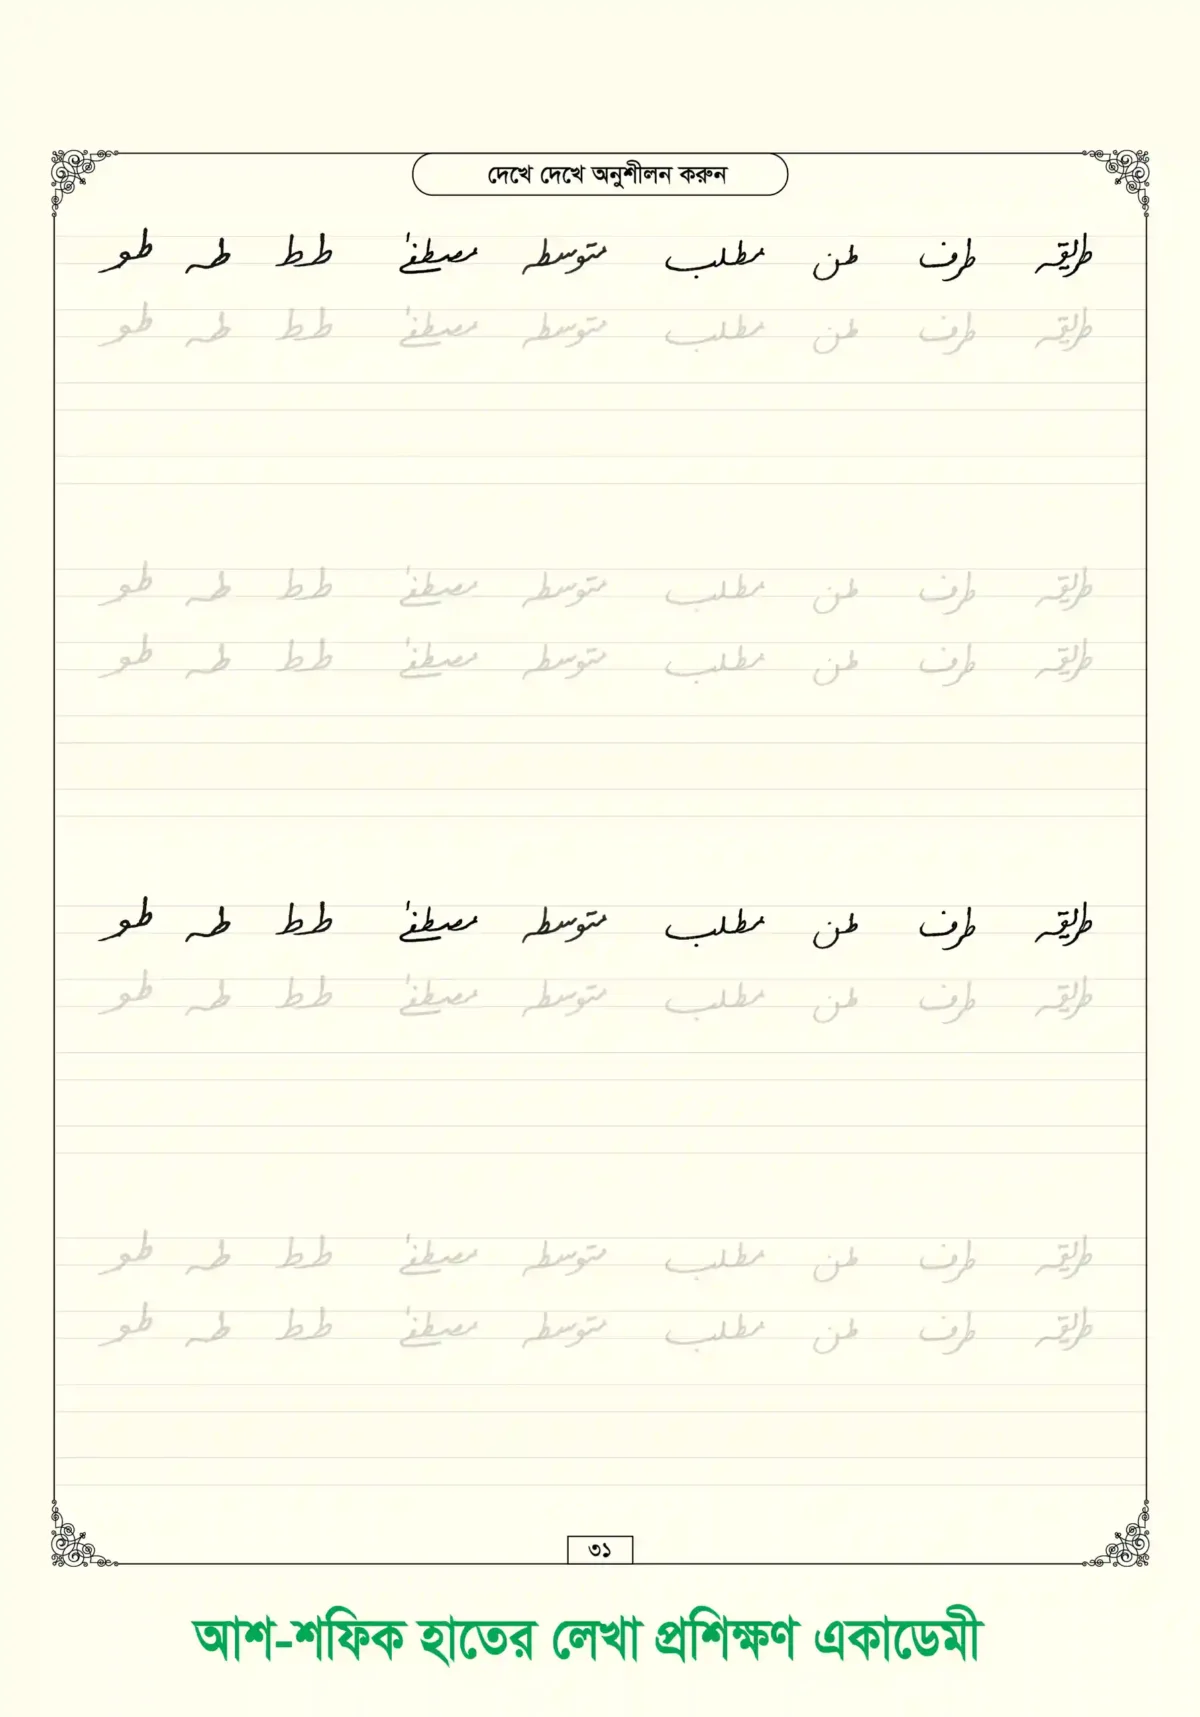 দেখে দেখে অনুশীলন করুন
طريقہ طرف طن مطلب متوسطہ مصطفےٰ ط ط طہ طو
طريقہ طرف طن مطلب متوسطہ مصطفےٰ ط ط طہ طو
طريقہ طرف طن مطلب متوسطہ مصطفےٰ ط ط طہ طو
طريقہ طرف طن مطلب متوسطہ مصطفےٰ ط ط طہ طو
طريقہ طرف طن مطلب متوسطہ مصطفےٰ ط ط طہ طو
طريقہ طرف طن مطلب متوسطہ مصطفےٰ ط ط طہ طو
طريقہ طرف طن مطلب متوسطہ مصطفےٰ ط ط طہ طو
طريقہ طرف طن مطلب متوسطہ مصطفےٰ ط ط طہ طو
৩১
আশ-শফিক হাতের লেখা প্রশিক্ষণ একাডেমী